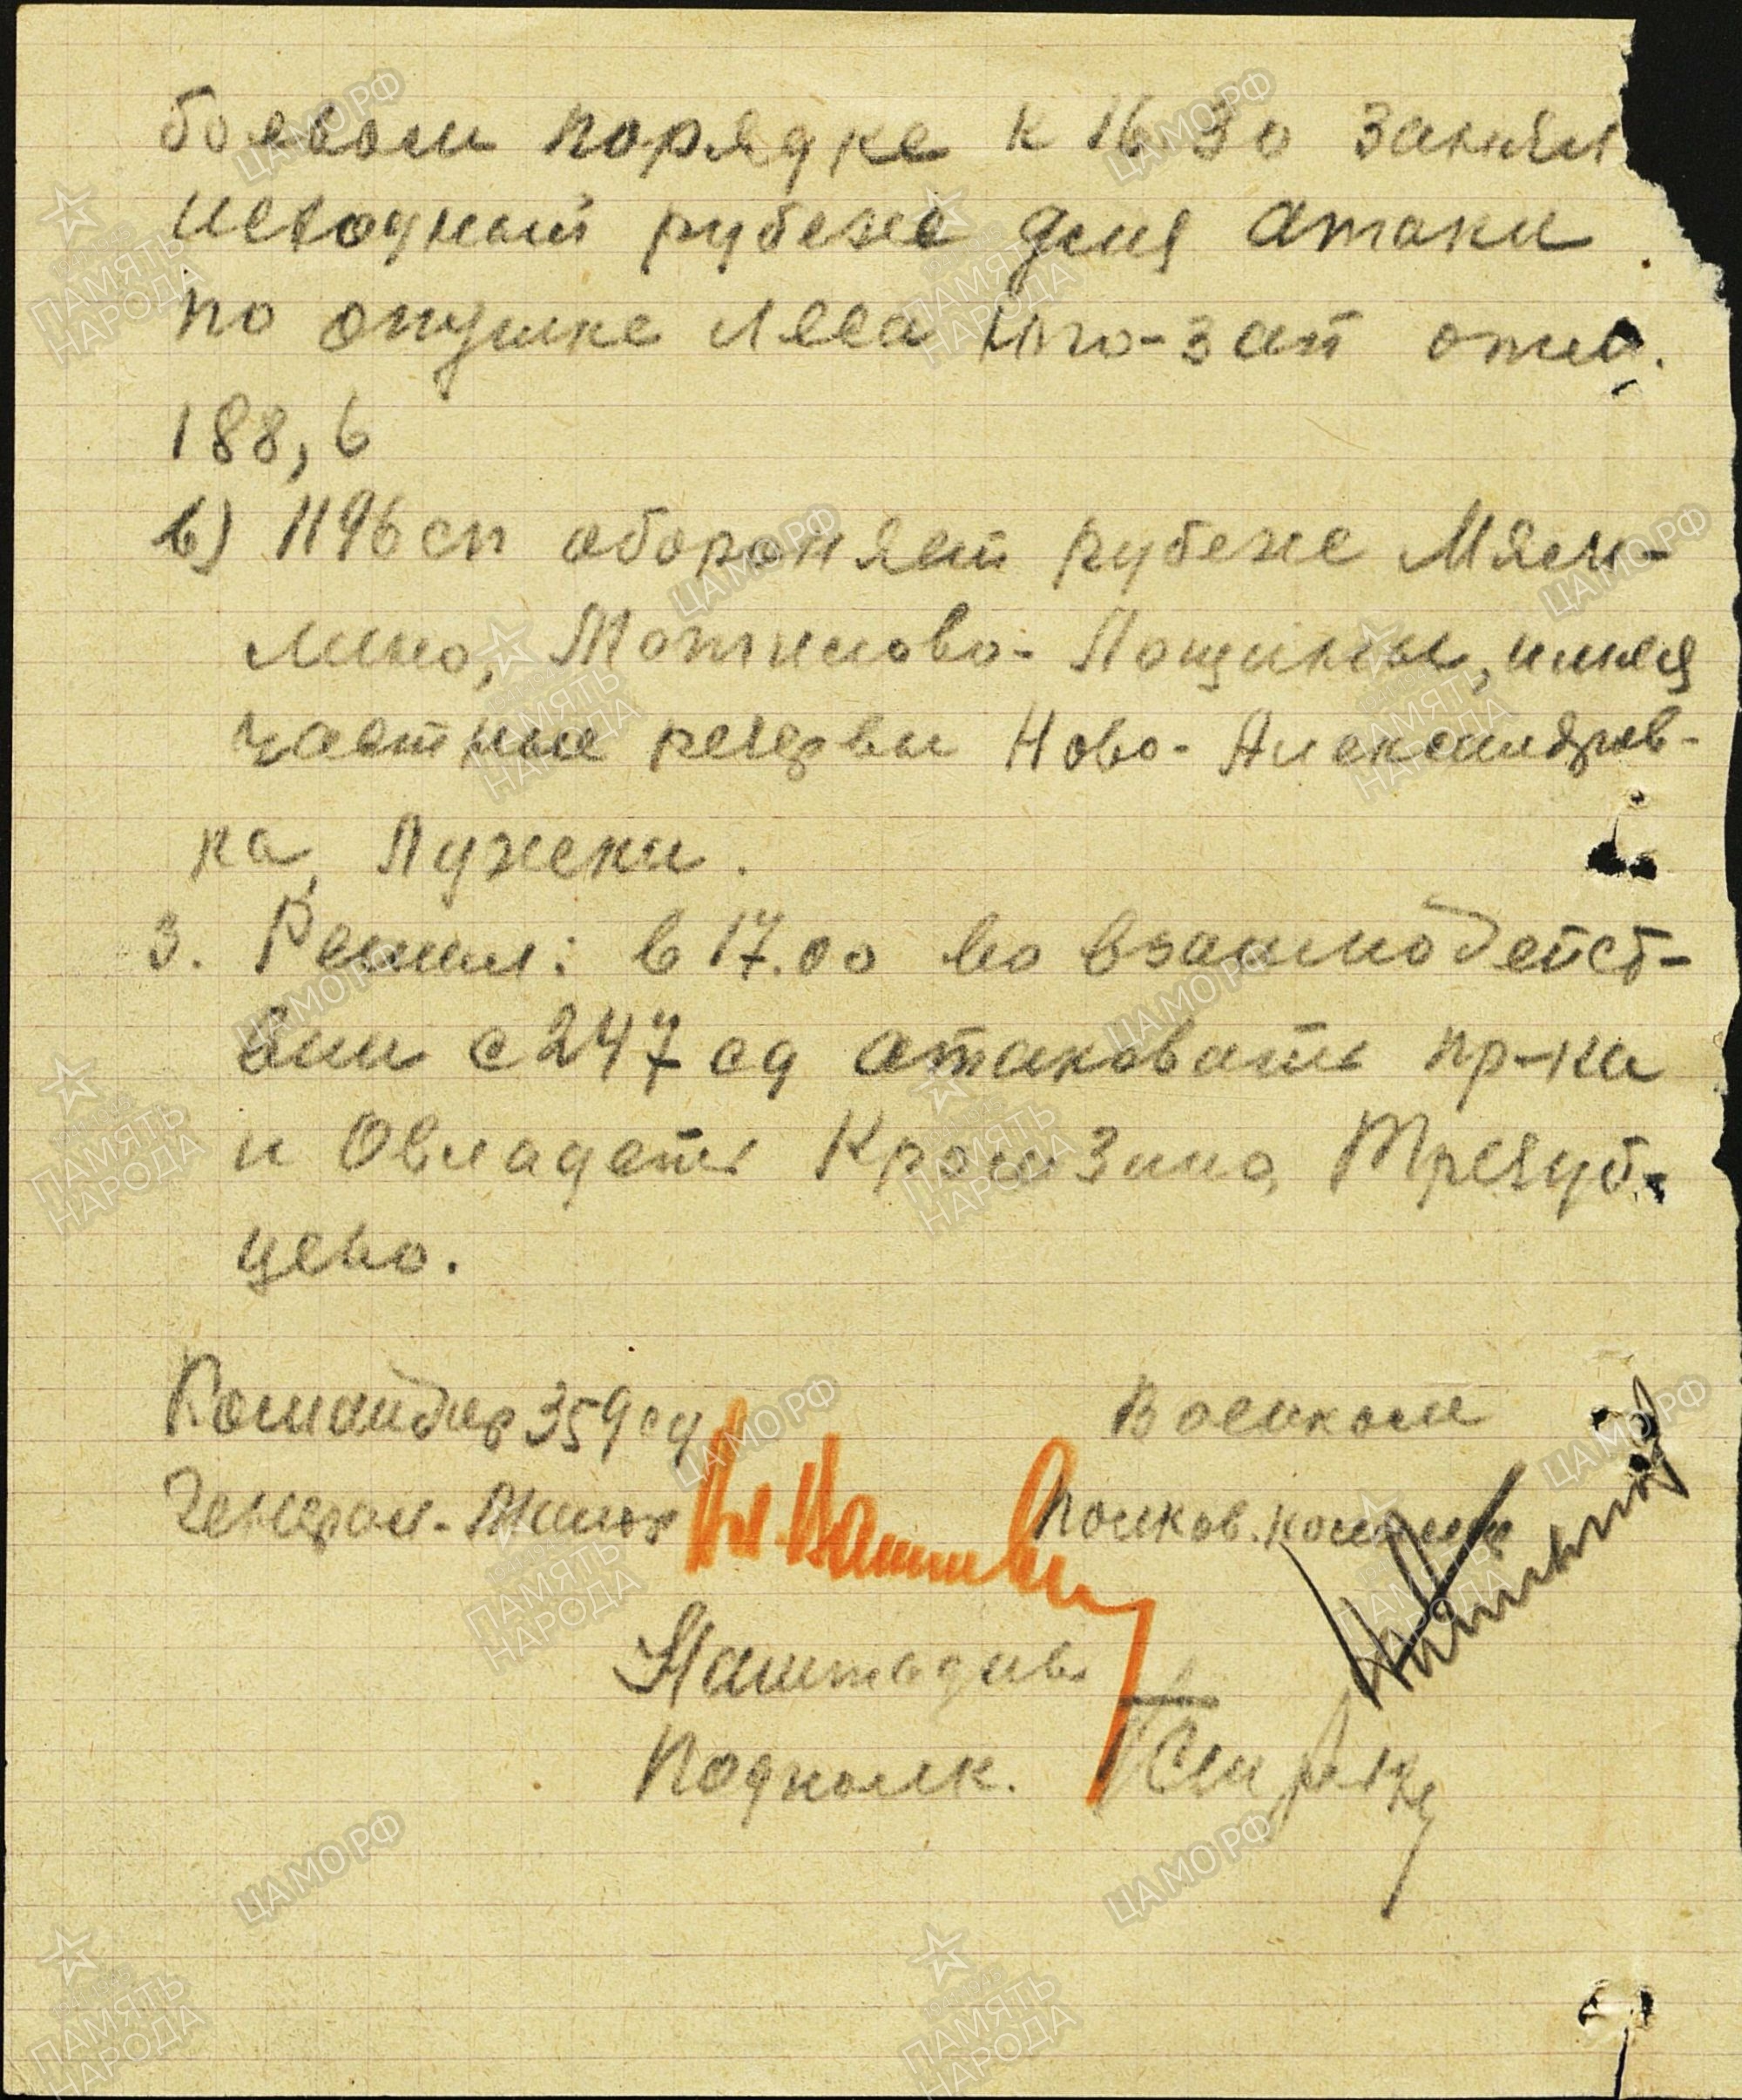 боевом порядке к 16.30 занял
исходный рубеже для атаки
по опушке леса Юго-зап отм.
188,6
в) 1196 сп обороняет рубеже Мям-
лино, Мотяково-Лощинки, имея
частные резервы Ново-Александров-
ка, Лужки.
3. Решил: в 17.00 во взаимодейст-
вии с 247 сд атаковать пр-ка
и Овладеть Крошзино, Трезуб-
цево.
Командир 359 сд Военком
Генерал-Майор Полков. комиссар
Наштадив
Подполк.